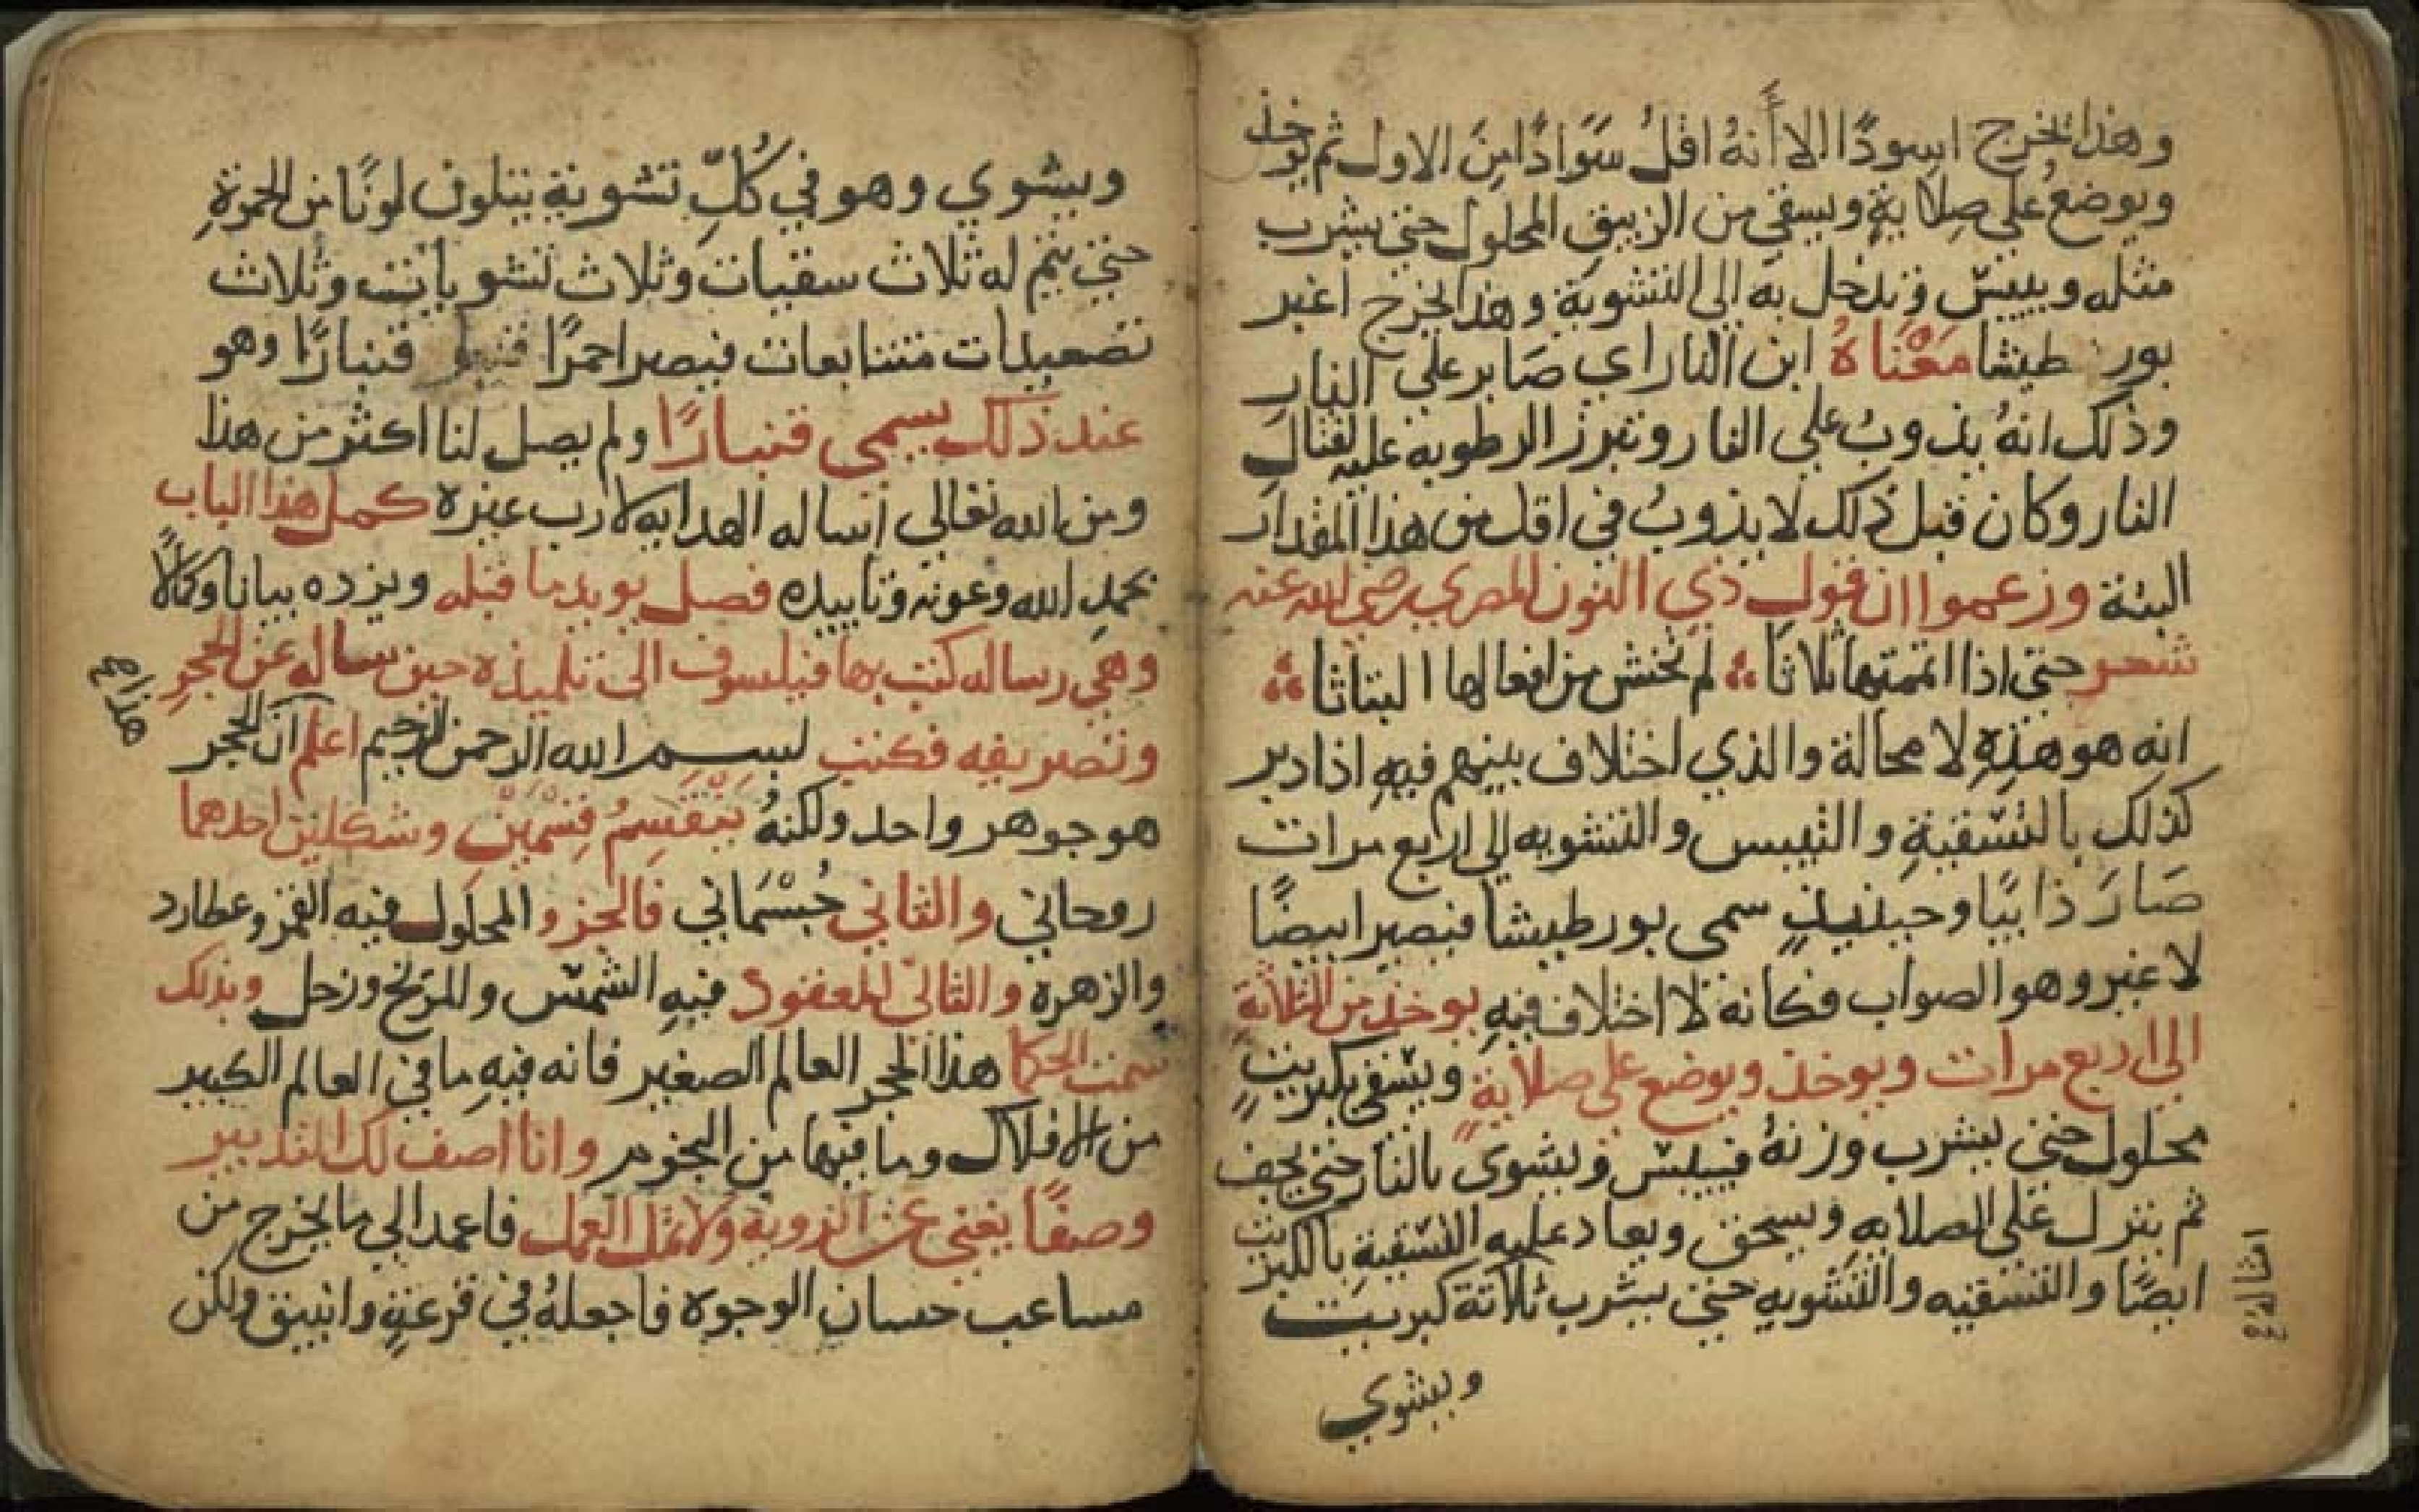 وهذا يخرج اسودًا الا أنهُ اقلُ سَوَادًا من الاول ثم يوخذ
ويوضعُ على صلاية ويسقي من الزيبق المحلول حتى يشرب
مثله وييبس ويدخل به الى التشوية وهذا يخرج اغبر
بور طيشا مَعْنَاهُ ابن النار اي صَابر على النار
وذلك انهُ يذوبُ على النار وتبرز الرطوبه عليه لقتال
النار وكان قبل ذلك لا يذوبُ في اقل من هذا المقدار
البتة وزعموا ان قول ذي النون المصري رضي الله عنه
شعر حتى اذا اتممتها ثلاثا لم تخش من افعالها البتاثا
انه هو هذِهِ لا محالة والذي اختلاف بينهم فيهِ اذا دبر
كذلك بالتسقيةِ والتيبس والتشويه الى اربع مرات
صَارَ ذايبًا وحينيذٍ سمى بورطيشا فيصير ابيضًا
لا غير وهو الصواب فكانهُ لا اختلاف فيهِ يوخذ من الثلاثة
الى اربع مرات ويوخذ ويوضع على صلايةٍ ويسقي كبريتٍ
محلول حتى يشرب وزنهُ فييبس ويشوى بالنار حتى يجف
ثم ينزل على الصلايه ويسحق ويعاد عليه التسقيةِ بالكبريت
ايضًا والتسقيه والتشويهِ حتى يشرب ثلاثة كبريت
ويشوي
امثاله
ويشوي وهو في كُلِّ تشوية يتلون لونًا من الحمرةِ
حتى يتم له ثلاث سقيات وثلاث تشويات وثلاث
تصعيدات متتابعات فيصير احمرًا قنبارًا وهو
عند ذلك يسمى قنبارًا ولم يصل لنا اكثر من هذا
ومن الله تعالى أساله الهدايه لا رب غيره كمل هذا الباب
بحمدِ الله وعونه وتاييده فصل يويد ما قبله ويزده بيانا وكمالًا
وهي رساله كتب بها فيلسوف الى تلميذه حين ساله عن الحجرِ
وتصريفه فكتب بسم الله الرحمن الرحيم اعلم ان الحجر
هو جوهر واحد ولكنهُ يَنْقَسِمُ قِسْمَيْنِ وشكلين احدهما
روحاني والثاني جُسْمَاني فالجزو المحلول فيه القمر وعطارد
والزهره والثاني المعقود فيهِ الشمس والمريخ وزحل وبذلك
سمت الحكما هذا الحجر العالم الصغير فانه فيهِ ما في العالم الكبير
من الافلاك وما فيها من النجوم وانا اصف لك التدبير
وصفًا يغني عن الرويةِ ولا مثل العمل فاعمد الى ما يخرج من
مساعب حسان الوجوه فاجعلهُ في قرعةٍ وانبيق ولكن